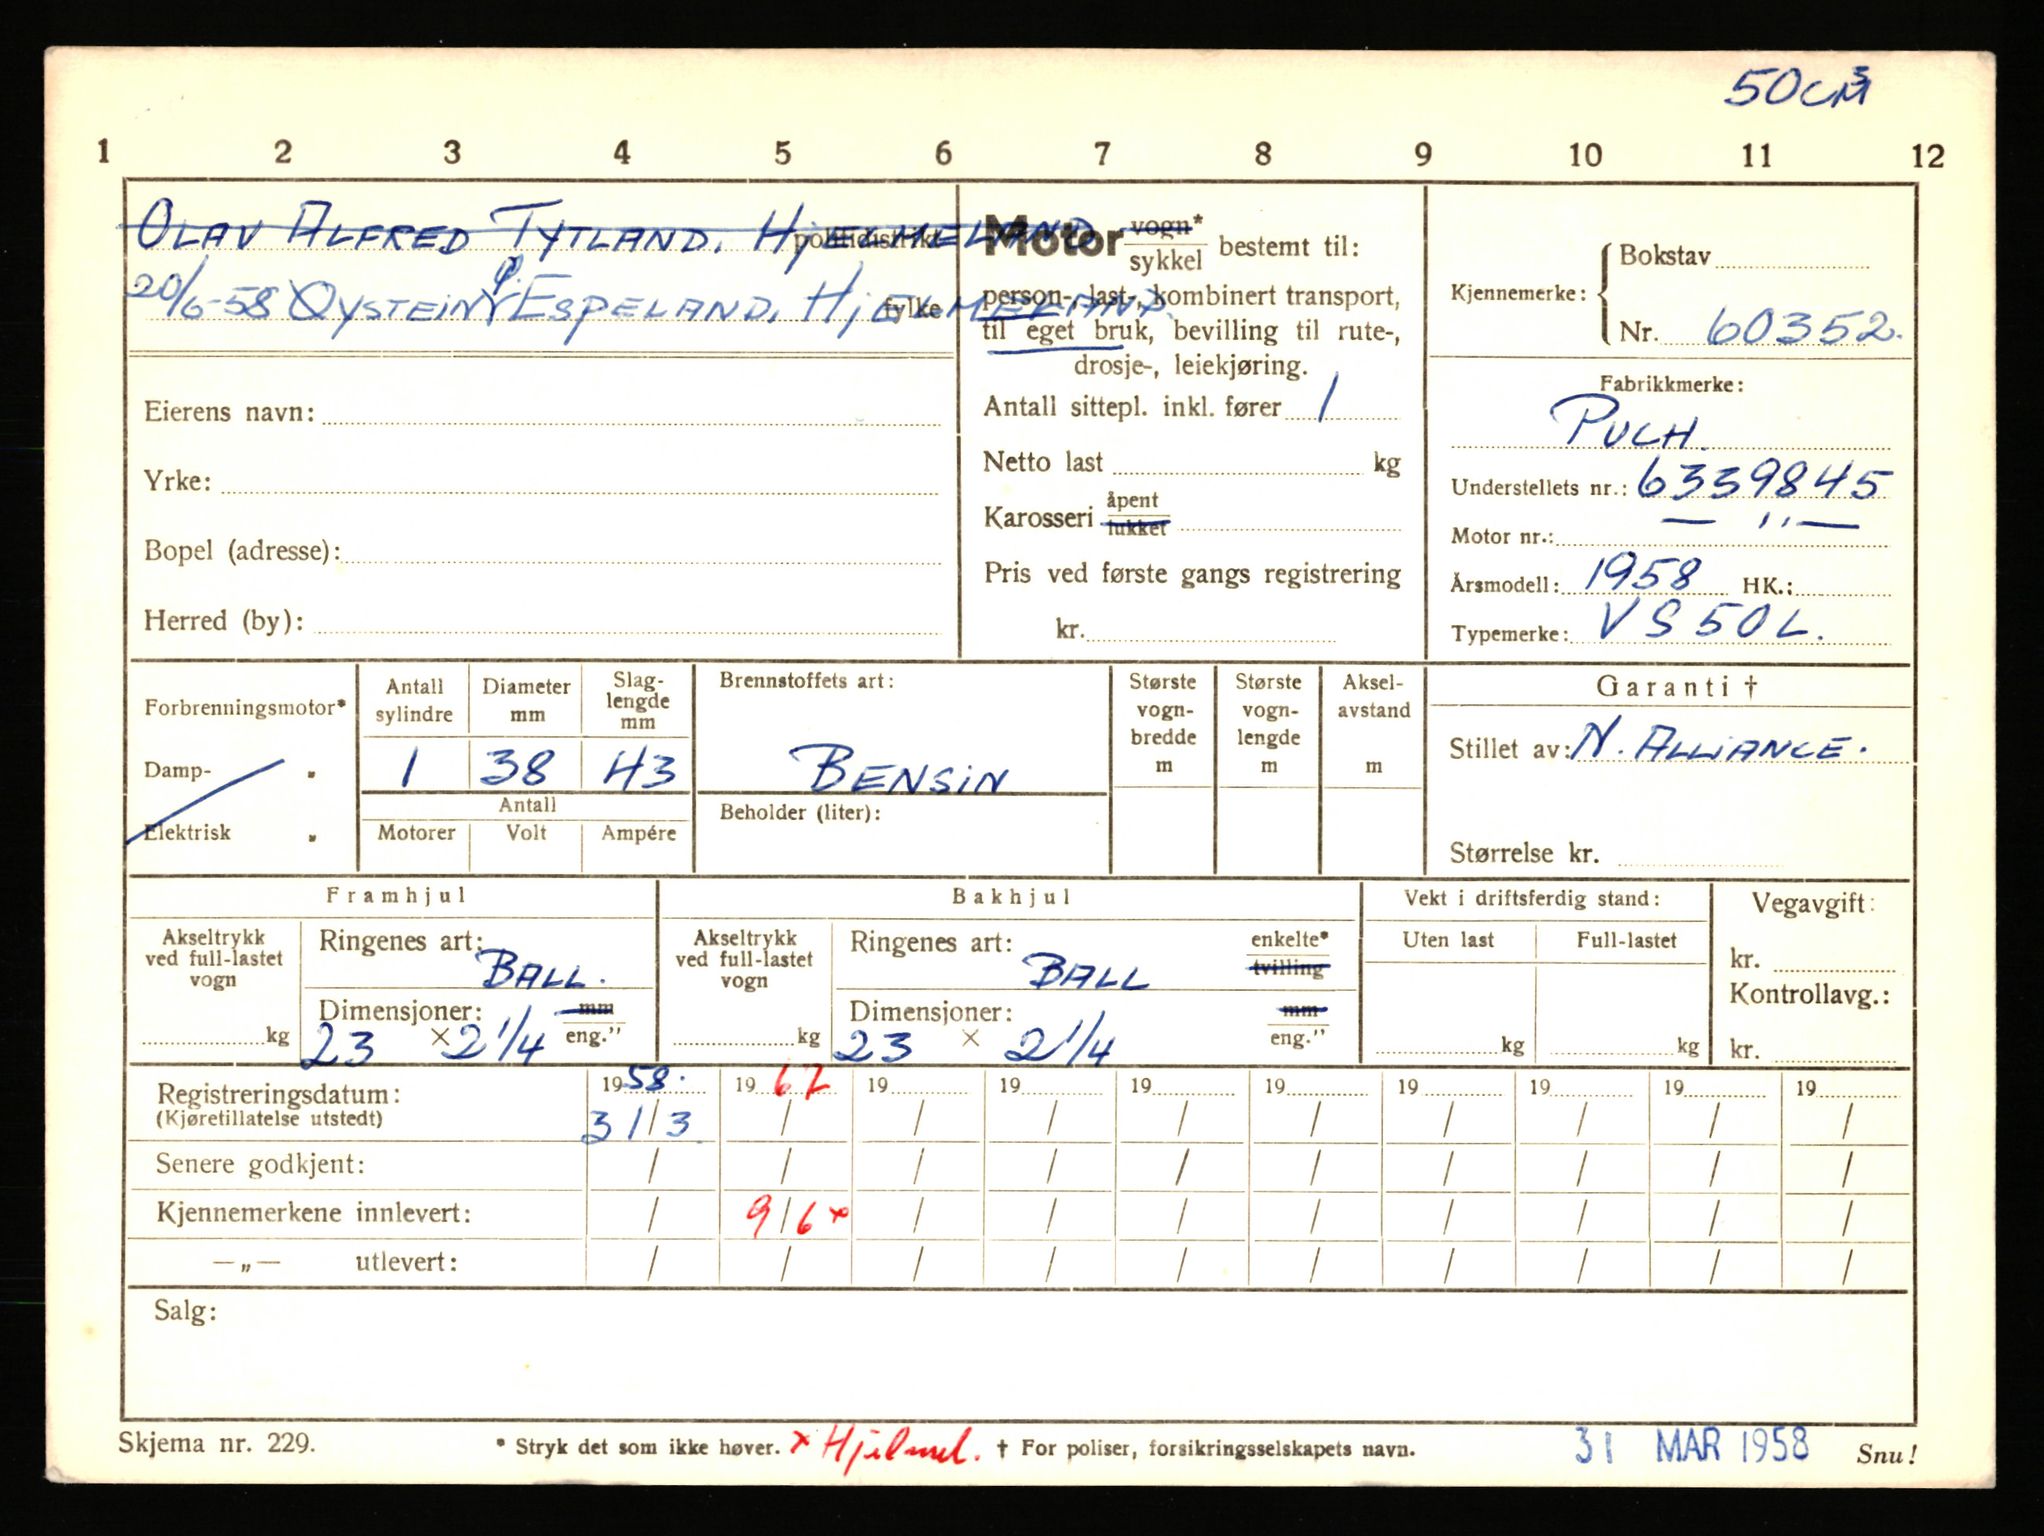 50 CM³
1 2 3 4 5 6 7 8 9 10 11 12
OLAV ALFRED TYTLAND. HJELMELAND
politidistrikt
20/6-58 ØYSTEIN P. ESPELAND, HJELMELAND.
fylke
Eierens navn:
Yrke:
Bopel (adresse):
Herred (by):
Motor vogn* sykkel bestemt til:
person-, last-, kombinert transport,
til eget bruk, bevilling til rute-,
drosje-, leiekjøring.
Antall sittepl. inkl. fører 1
Netto last kg
Karosseri åpent lukket
Pris ved første gangs registrering
kr.
Kjennemerke: Bokstav
Nr. 60352.
Fabrikkmerke:
PUCH.
Understellets nr.: 6339845
Motor nr.: — ,, —
Årsmodell: 1958 HK.:
Typemerke: VS 50 L.
Forbrenningsmotor*
Damp- "
Elektrisk "
Antall sylindre Diameter mm Slag-lengde mm
1 38 43
Antall
Motorer Volt Ampére
Brennstoffets art:
BENSIN
Beholder (liter):
Største vogn-bredde m
Største vogn-lengde m
Aksel-avstand m
Garanti †
Stillet av: N. ALLIANCE.
Størrelse kr.
Framhjul
Akseltrykk ved full-lastet vogn
kg
Ringenes art:
BALL.
Dimensjoner: mm
23 × 2 1/4 eng."
Bakhjul
Akseltrykk ved full-lastet vogn
kg
Ringenes art: enkelte* tvilling
BALL
Dimensjoner: mm
23 × 2 1/4 eng."
Vekt i driftsferdig stand:
Uten last Full-lastet
kg kg
Vegavgift:
kr.
Kontrollavg.:
kr.
Registreringsdatum: 1958. 1967 19 19 19 19 19 19 19 19
(Kjøretillatelse utstedt) 31/3 / / / / / / / / /
Senere godkjent: / / / / / / / / / /
Kjennemerkene innlevert: / 9/6 × / / / / / / / /
—„— utlevert: / / / / / / / / / /
Salg:
Skjema nr. 229. * Stryk det som ikke høver. × Hjelmel. † For poliser, forsikringsselskapets navn. 31 MAR 1958 Snu!